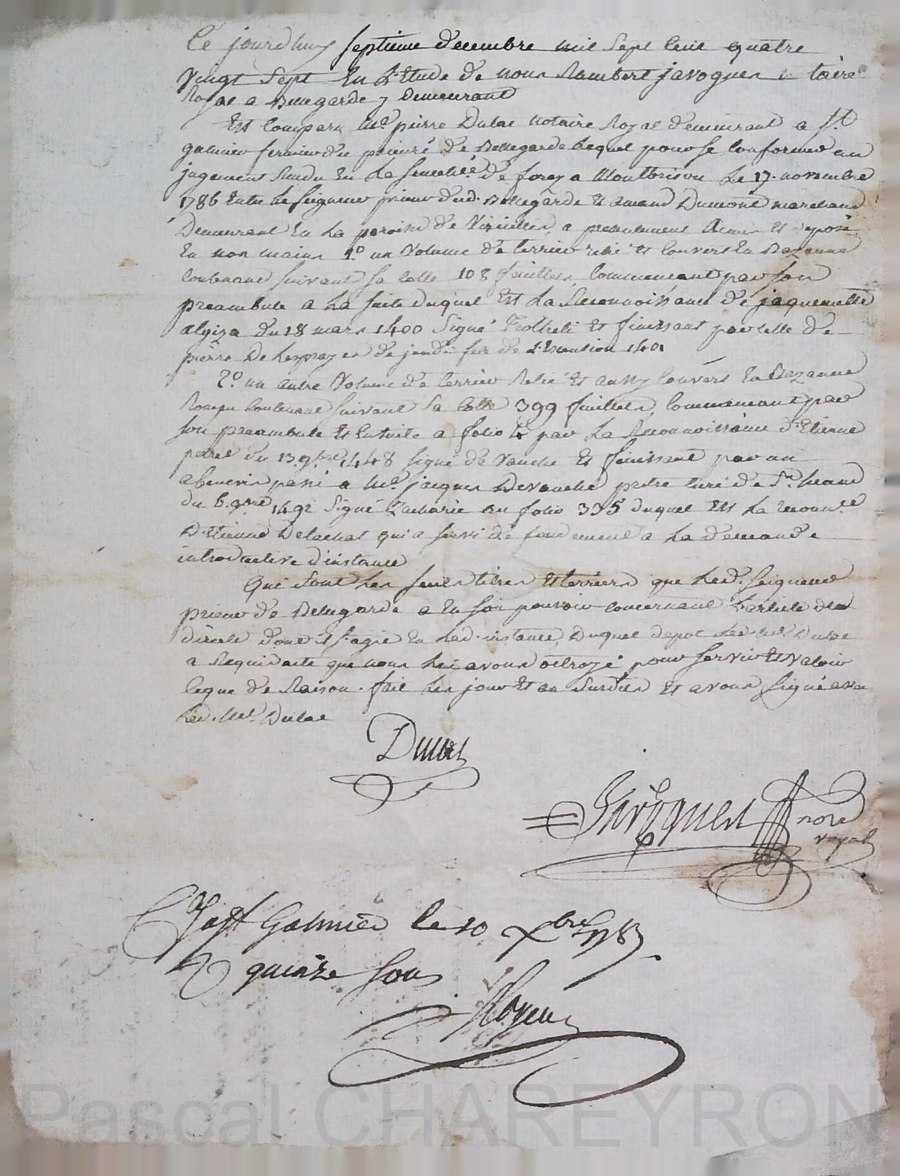 Ce jourdhuy septieme decembre mil sept cent quatre
vingt sept en L'Etude de nous Rambert javogues notaire
Royal a Bellegarde y demeurant
Est comparu Me. pierre Dulac notaire Royal demeurant a St.
galmier fermier du prieuré de Bellegarde Lequel pour se conformer au
jugement Rendu en La senechée. de forez a Montbrison Le 17. novembre
1786 Entre le seigneur prieur dud. Bellegarde et Dumont marchand
Demeurant en La paroisse de a presentement Remis et deposé
En nos mains 1°. un Volume de terrier relié et couvert en Bazanne
contenant suivant sa cotte 108 feuillets, commencant par son
preambule a La suite duquel est La Reconnoissance de jaquemette
du 28 mars 1400 signé et finissant par celle de
pierre De de jeudi fete de L'ascention 1401
2°. un autre Volume de terrier Relié et aussy couvert en Bazanne
Rouge contenant suivant sa cotte 399 feuillets, commencant par
son preambule et ensuite a folio par La Reconnoissance d'Etienne
du 13 9bre. 1448 signé de Vauche et finissant par un
abenevis passé a Me. jacques Devauche pretre curé de St.
du 6. 1492 signé Zacharie au folio 335 duquel est La reconnce.
D'Etienne Delachat qui a servi de fondement a La demande
introductive d'instance
Qui sont Les seuls titres et terriers que Led. seigneur
prieur de Bellegarde a en son pouvoir concernant L'article de
directe dont il s'agit en Lad. instance, Duquel depot Led. Me. Dulac
a Requis acte que nous Lui avons octroyé pour servir et valoir
ceque de Raison. fait Les jour et an susdits et avons signé avec
Led. Me. Dulac
Dulac
Javogues nore
royal
a St Galmier le 10 xbre 1787.
R quinze sous
Pascal CHAREYRON